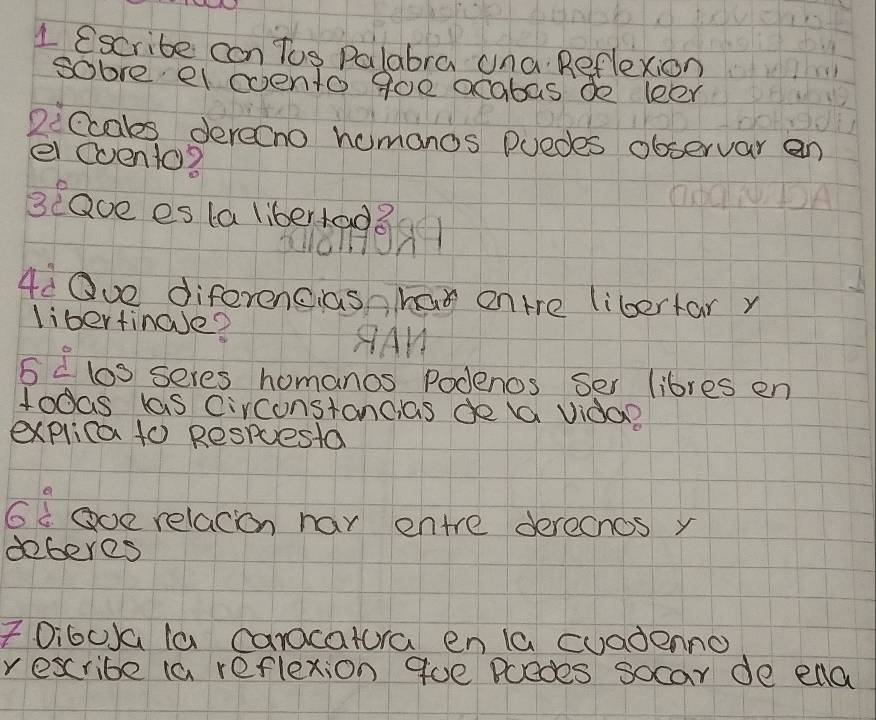 1 Escribe con Tus Palabra una Reflexion
sobre el coento qoe acabas de leer
2¿Ccales derecno homanos puedes observar en
el Cuento?
3¿Qve es la libertad?
4¿Que diferencias hay entre libertar y
libertinaje?
5¿los seres homanos Podenos ser libres en
todas las circunstancias de la vida?
explica to Respuesta
6¿Qoe relacion hay entre derecnos y
deberes
7 Dibuja la caracatura en la cuadenno
y escribe la reflexion que puedes socar de ella